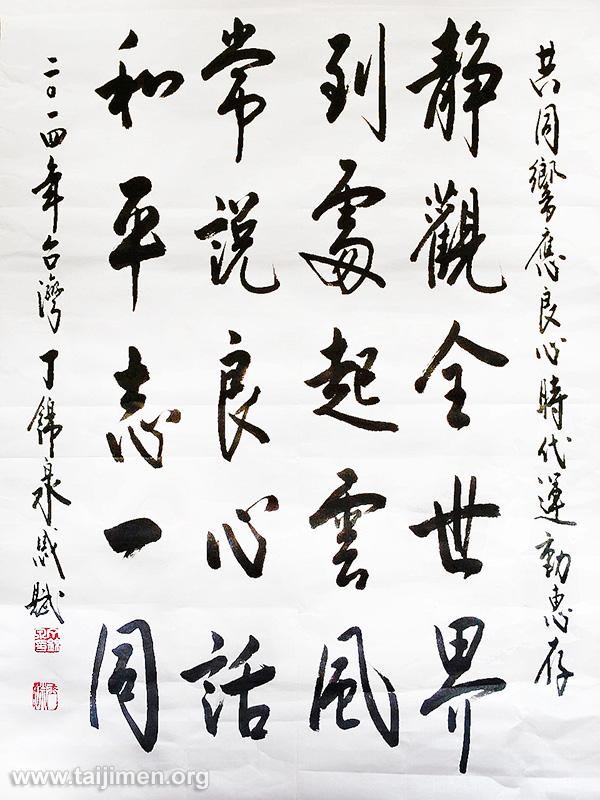 共同響應良心時代運動惠存
靜觀全世界
到處起雲風
常說良心話
和平志一同
二〇一四年台灣丁錦泉感賦
www.taijimen.org